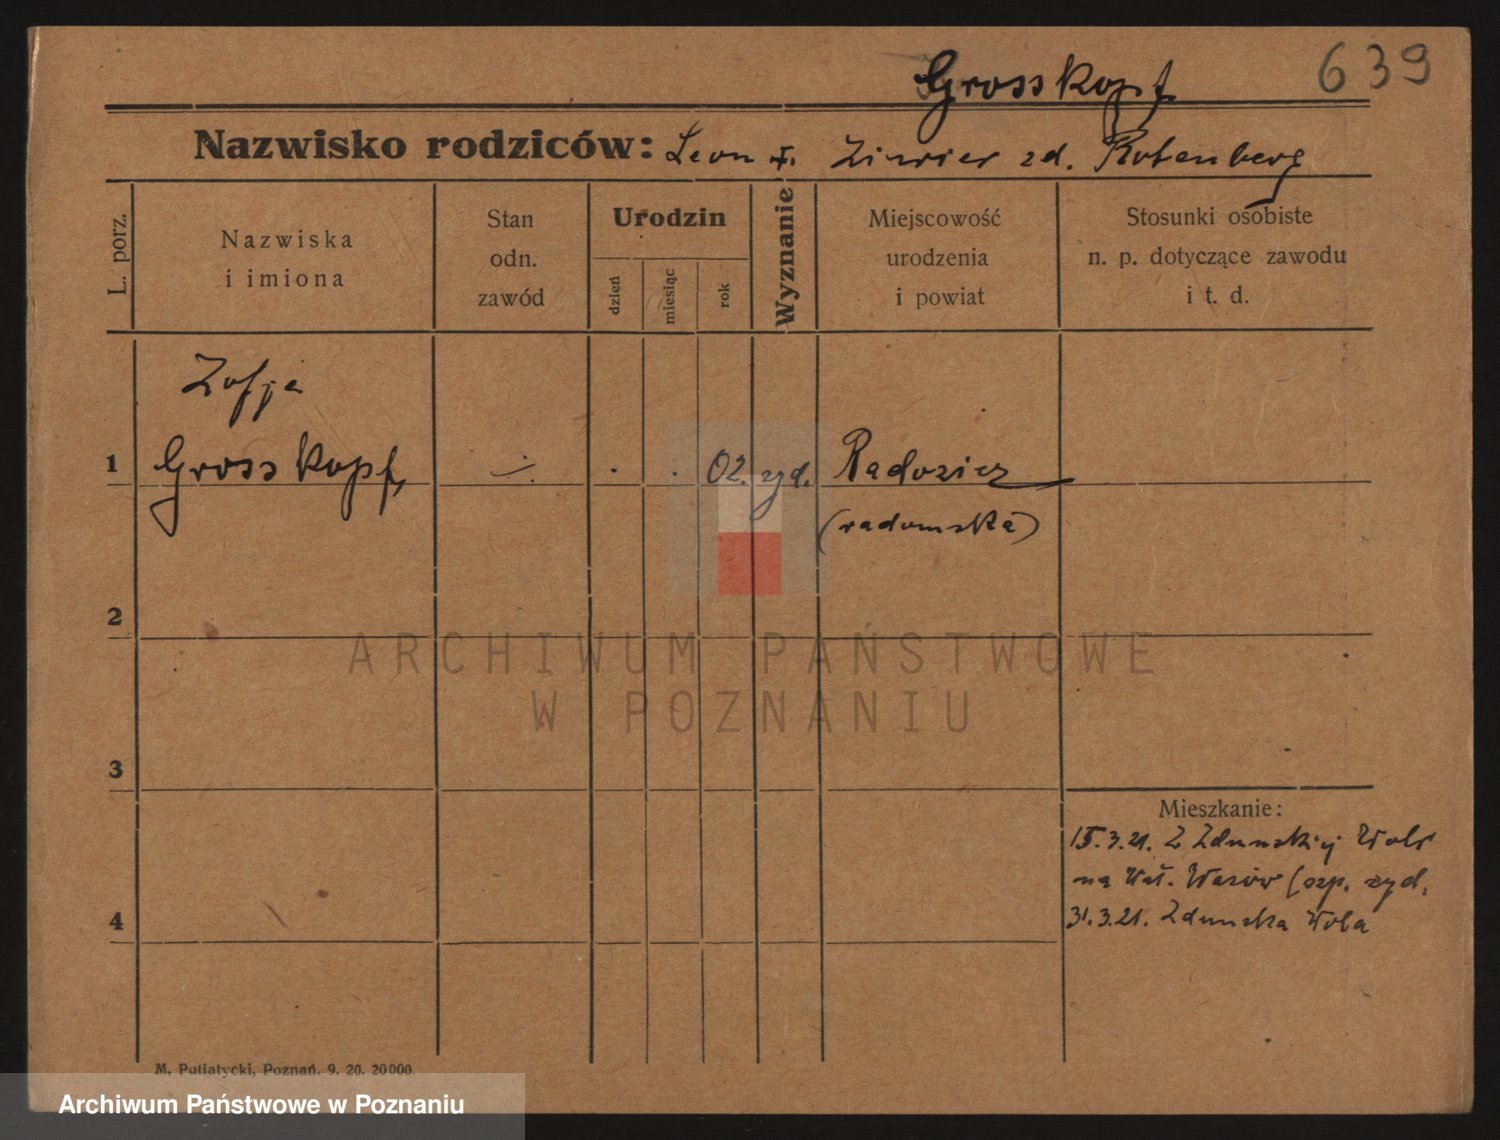 Grosskopf
639
Nazwisko rodziców: Leon i. zd. Rotenberg
L. porz.
Nazwiska
i imiona
Stan
odn.
zawód
Urodzin
dzień
miesiąc
rok
Wyznanie
Miejscowość
urodzenia
i powiat
Stosunki osobiste
n. p. dotyczące zawodu
i t. d.
Zofja
1 Grosskopf, 02. żyd.
(radomska)
2
3
Mieszkanie:
15.3.21. Z Zduńskiej Woli
na Wał. Wazów (szp. żyd.
4
31.3.21. Zduńska Wola
M. Putiatycki, Poznań. 9. 20. 20000.
ARCHIWUM PAŃSTWOWE
W POZNANIU
Archiwum Państwowe w Poznaniu